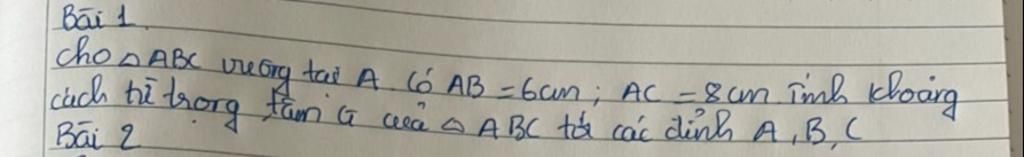 Bài 1
Cho △ABC vuông tại A có AB = 6cm; AC = 8cm Tính khoảng
cách từ trọng tâm G của △ ABC tới các đỉnh A, B, C
Bài 2